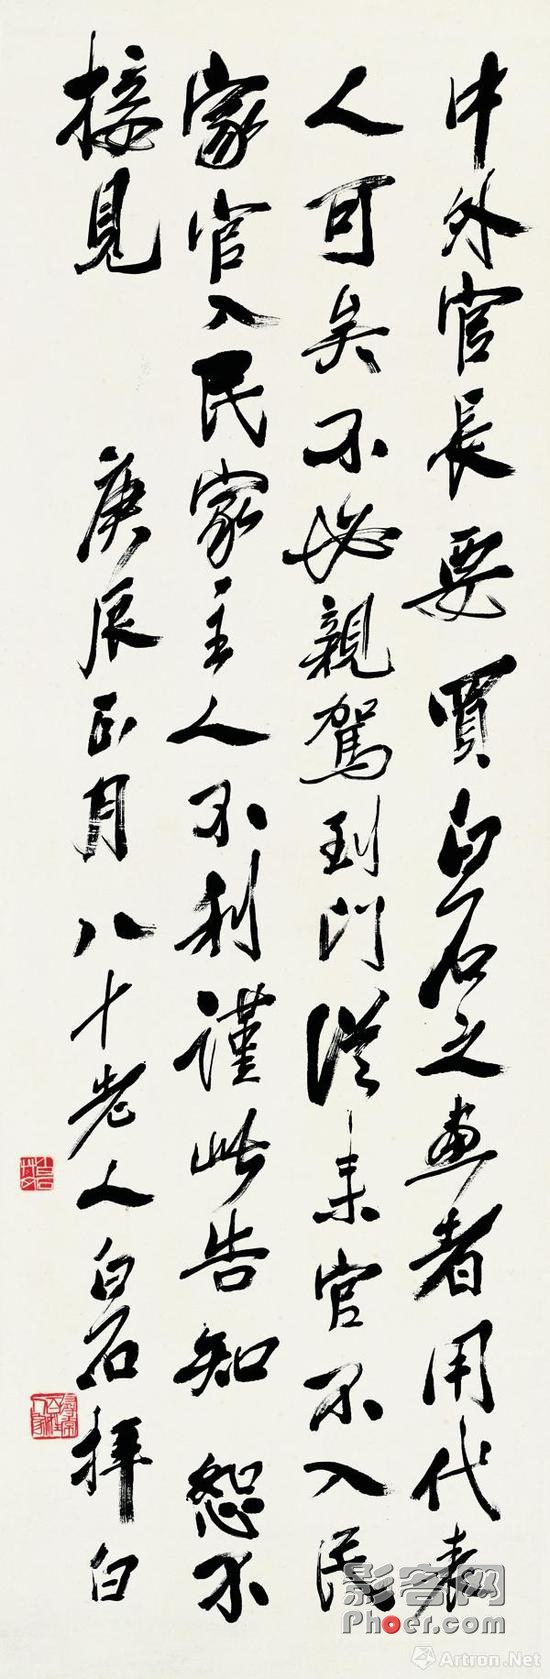 中外官長要買白石之畫者用代表
人可矣不必親駕到門從來官不入民
家官入民家主人不利謹此告知恕不
接見
庚辰正月八十老人白石拜白
影客网
Phoer.com
Artron.Net